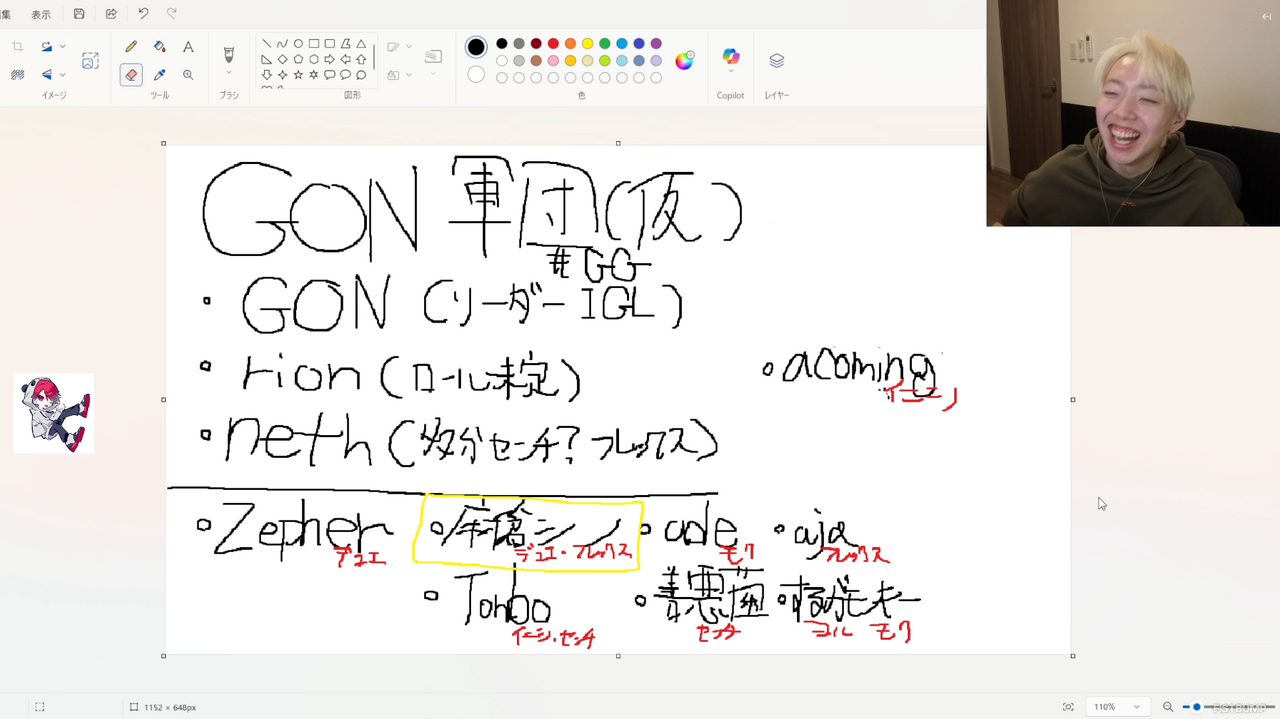 集 表示
イメージ ツール ブラシ 図形 色 Copilot レイヤー
GON 軍団(仮)
#GG
・GON (リーダー IGL)
・rion (ロール未定)
・acoming
イニシ
・neth (多分センチ? フレックス)
・Zepher
デュエ
シノ
デュエ・フレックス
・ade
モク
・aja
フレックス
・Tonbo
イニシ・センチ
・善悪菌
センチ
コル モク
1152 × 648px
110%